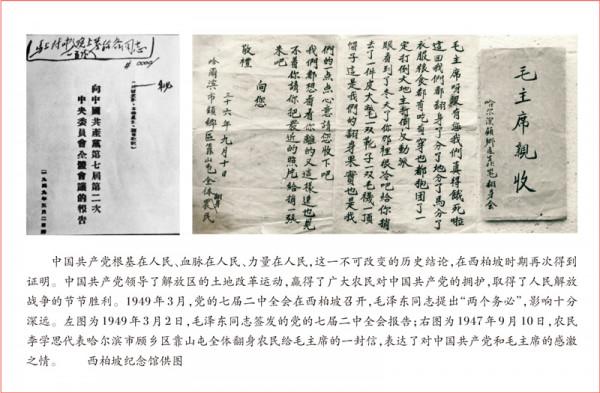 向中國共產黨第七屆第二次
中央委員會全體會議的報告
毛主席呀没有您我們真得餓死啦
這回我們都翻身了分了地分了馬分了
衣服粮食都有吃有穿也都抱团了一
定打倒大地主反動派
眼看到了冬天了你那裡很冷吧給你捎
去了一件皮大氅一双靴子一双毛襪一頂
帽子這是我們的翻身果實也是我
們的点点心意請您收下吧
我們都想看看你離的又這樣遠也見
不着你請你把最近的照片給捎一張
來吧
向您
敬禮
三十六年九月十日
哈爾滨市顧鄉區靠山屯全体農民
毛主席親收
哈尔滨顧鄉區靠山屯翻身会
中国共产党根基在人民、血脉在人民、力量在人民,这一不可改变的历史结论,在西柏坡时期再次得到
证明。中国共产党领导了解放区的土地改革运动,赢得了广大农民对中国共产党的拥护,取得了人民解放
战争的节节胜利。1949年3月,党的七届二中全会在西柏坡召开,毛泽东同志提出“两个务必”,影响十分
深远。左图为1949年3月2日,毛泽东同志签发的党的七届二中全会报告;右图为1947年9月10日,农民
李学思代表哈尔滨市顾乡区靠山屯全体翻身农民给毛主席的一封信,表达了对中国共产党和毛主席的感激
之情。 西柏坡纪念馆供图